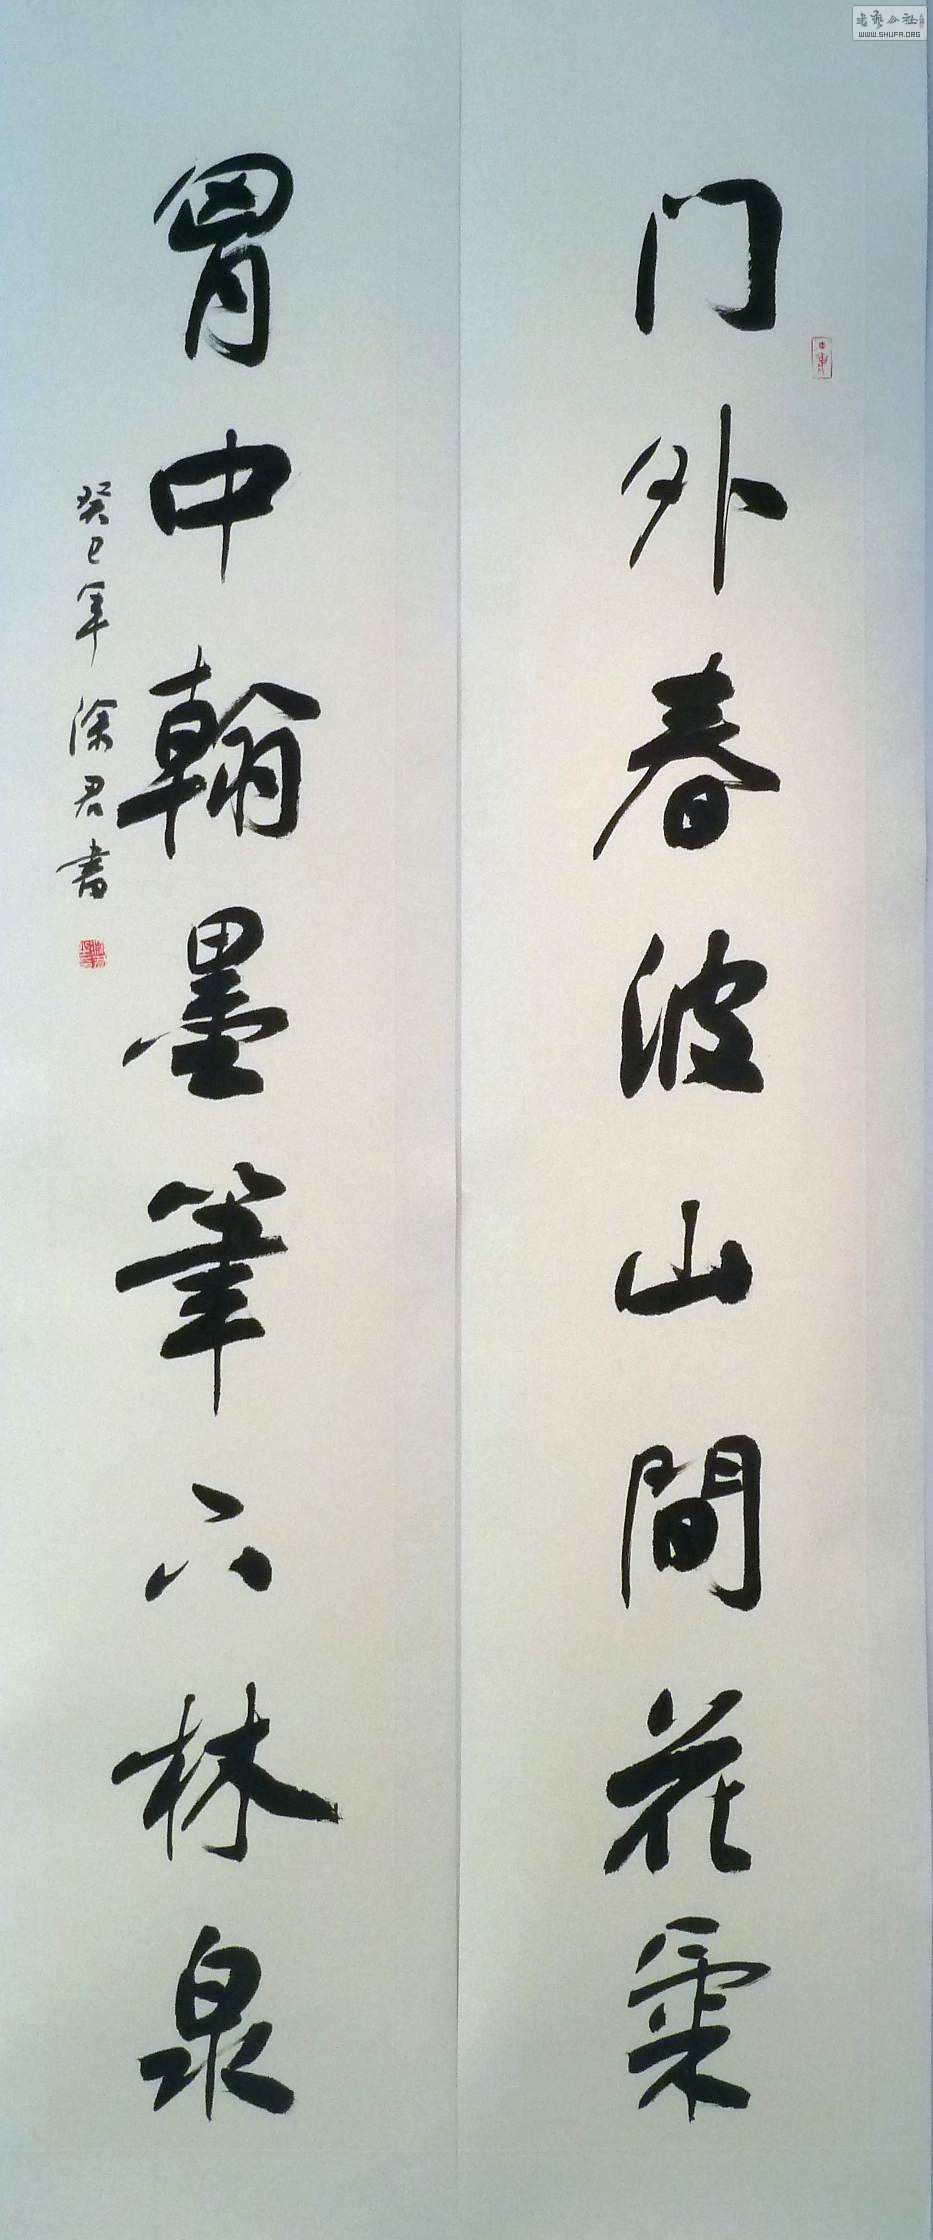 门外春波山間花氣
胷中翰墨筆下林泉
癸巳年 君書
书艺公社
WWW.SHUFA.ORG